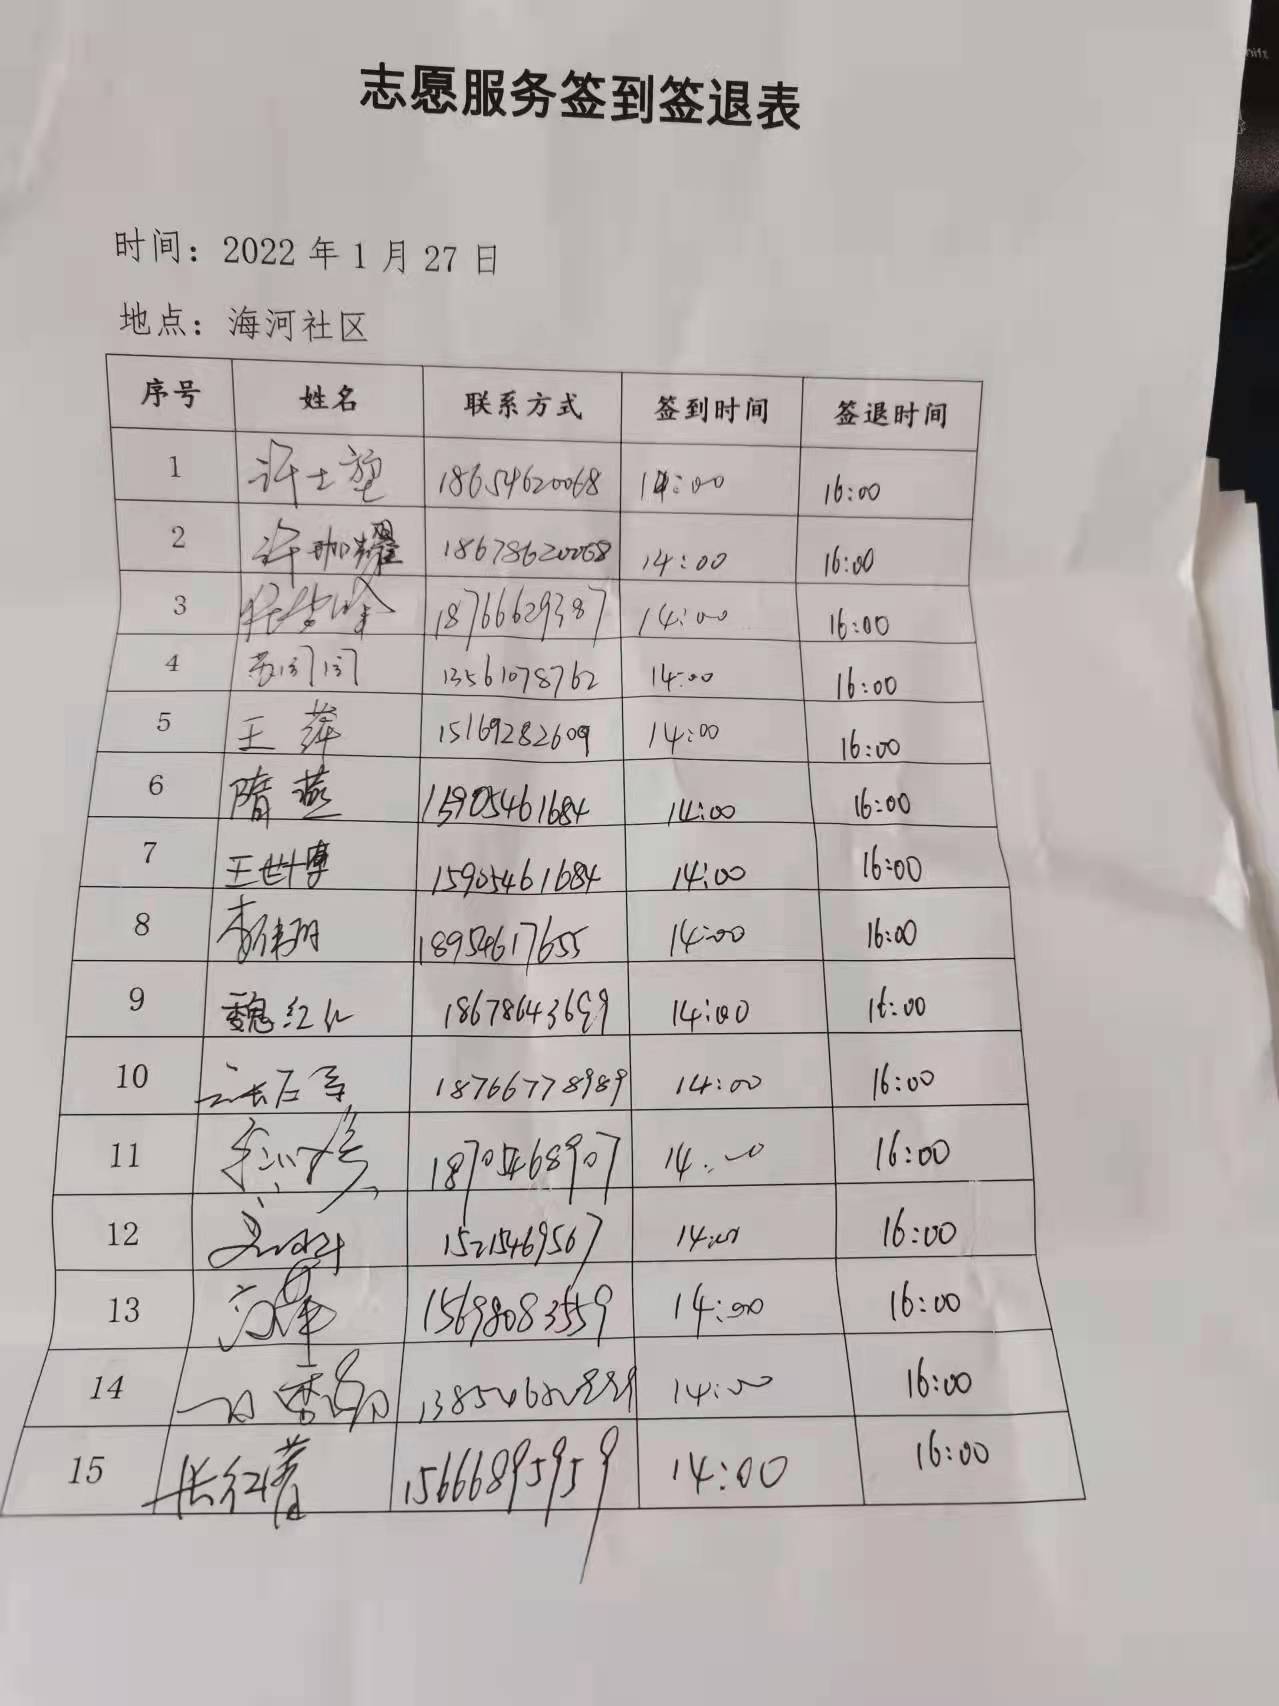 志愿服务签到签退表
时间：2022年1月27日
地点：海河社区
序号 姓名 联系方式 签到时间 签退时间
1 许士 18654620068 14:00 16:00
2 许珈耀 18678620068 14:00 16:00
3 18766629387 14:00 16:00
4 苏 13561078762 14:00 16:00
5 王萍 15169282609 14:00 16:00
6 隋燕 15905461684 14:00 16:00
7 王世博 15905461684 14:00 16:00
8 李伟 18954617655 14:00 16:00
9 魏红 18678643699 14:00 16:00
10 18766778989 14:00 16:00
11 李 18705468907 14:00 16:00
12 15215469567 14:00 16:00
13 15698083559 14:00 16:00
14 14:00 16:00
15 张红 15666895959 14:00 16:00